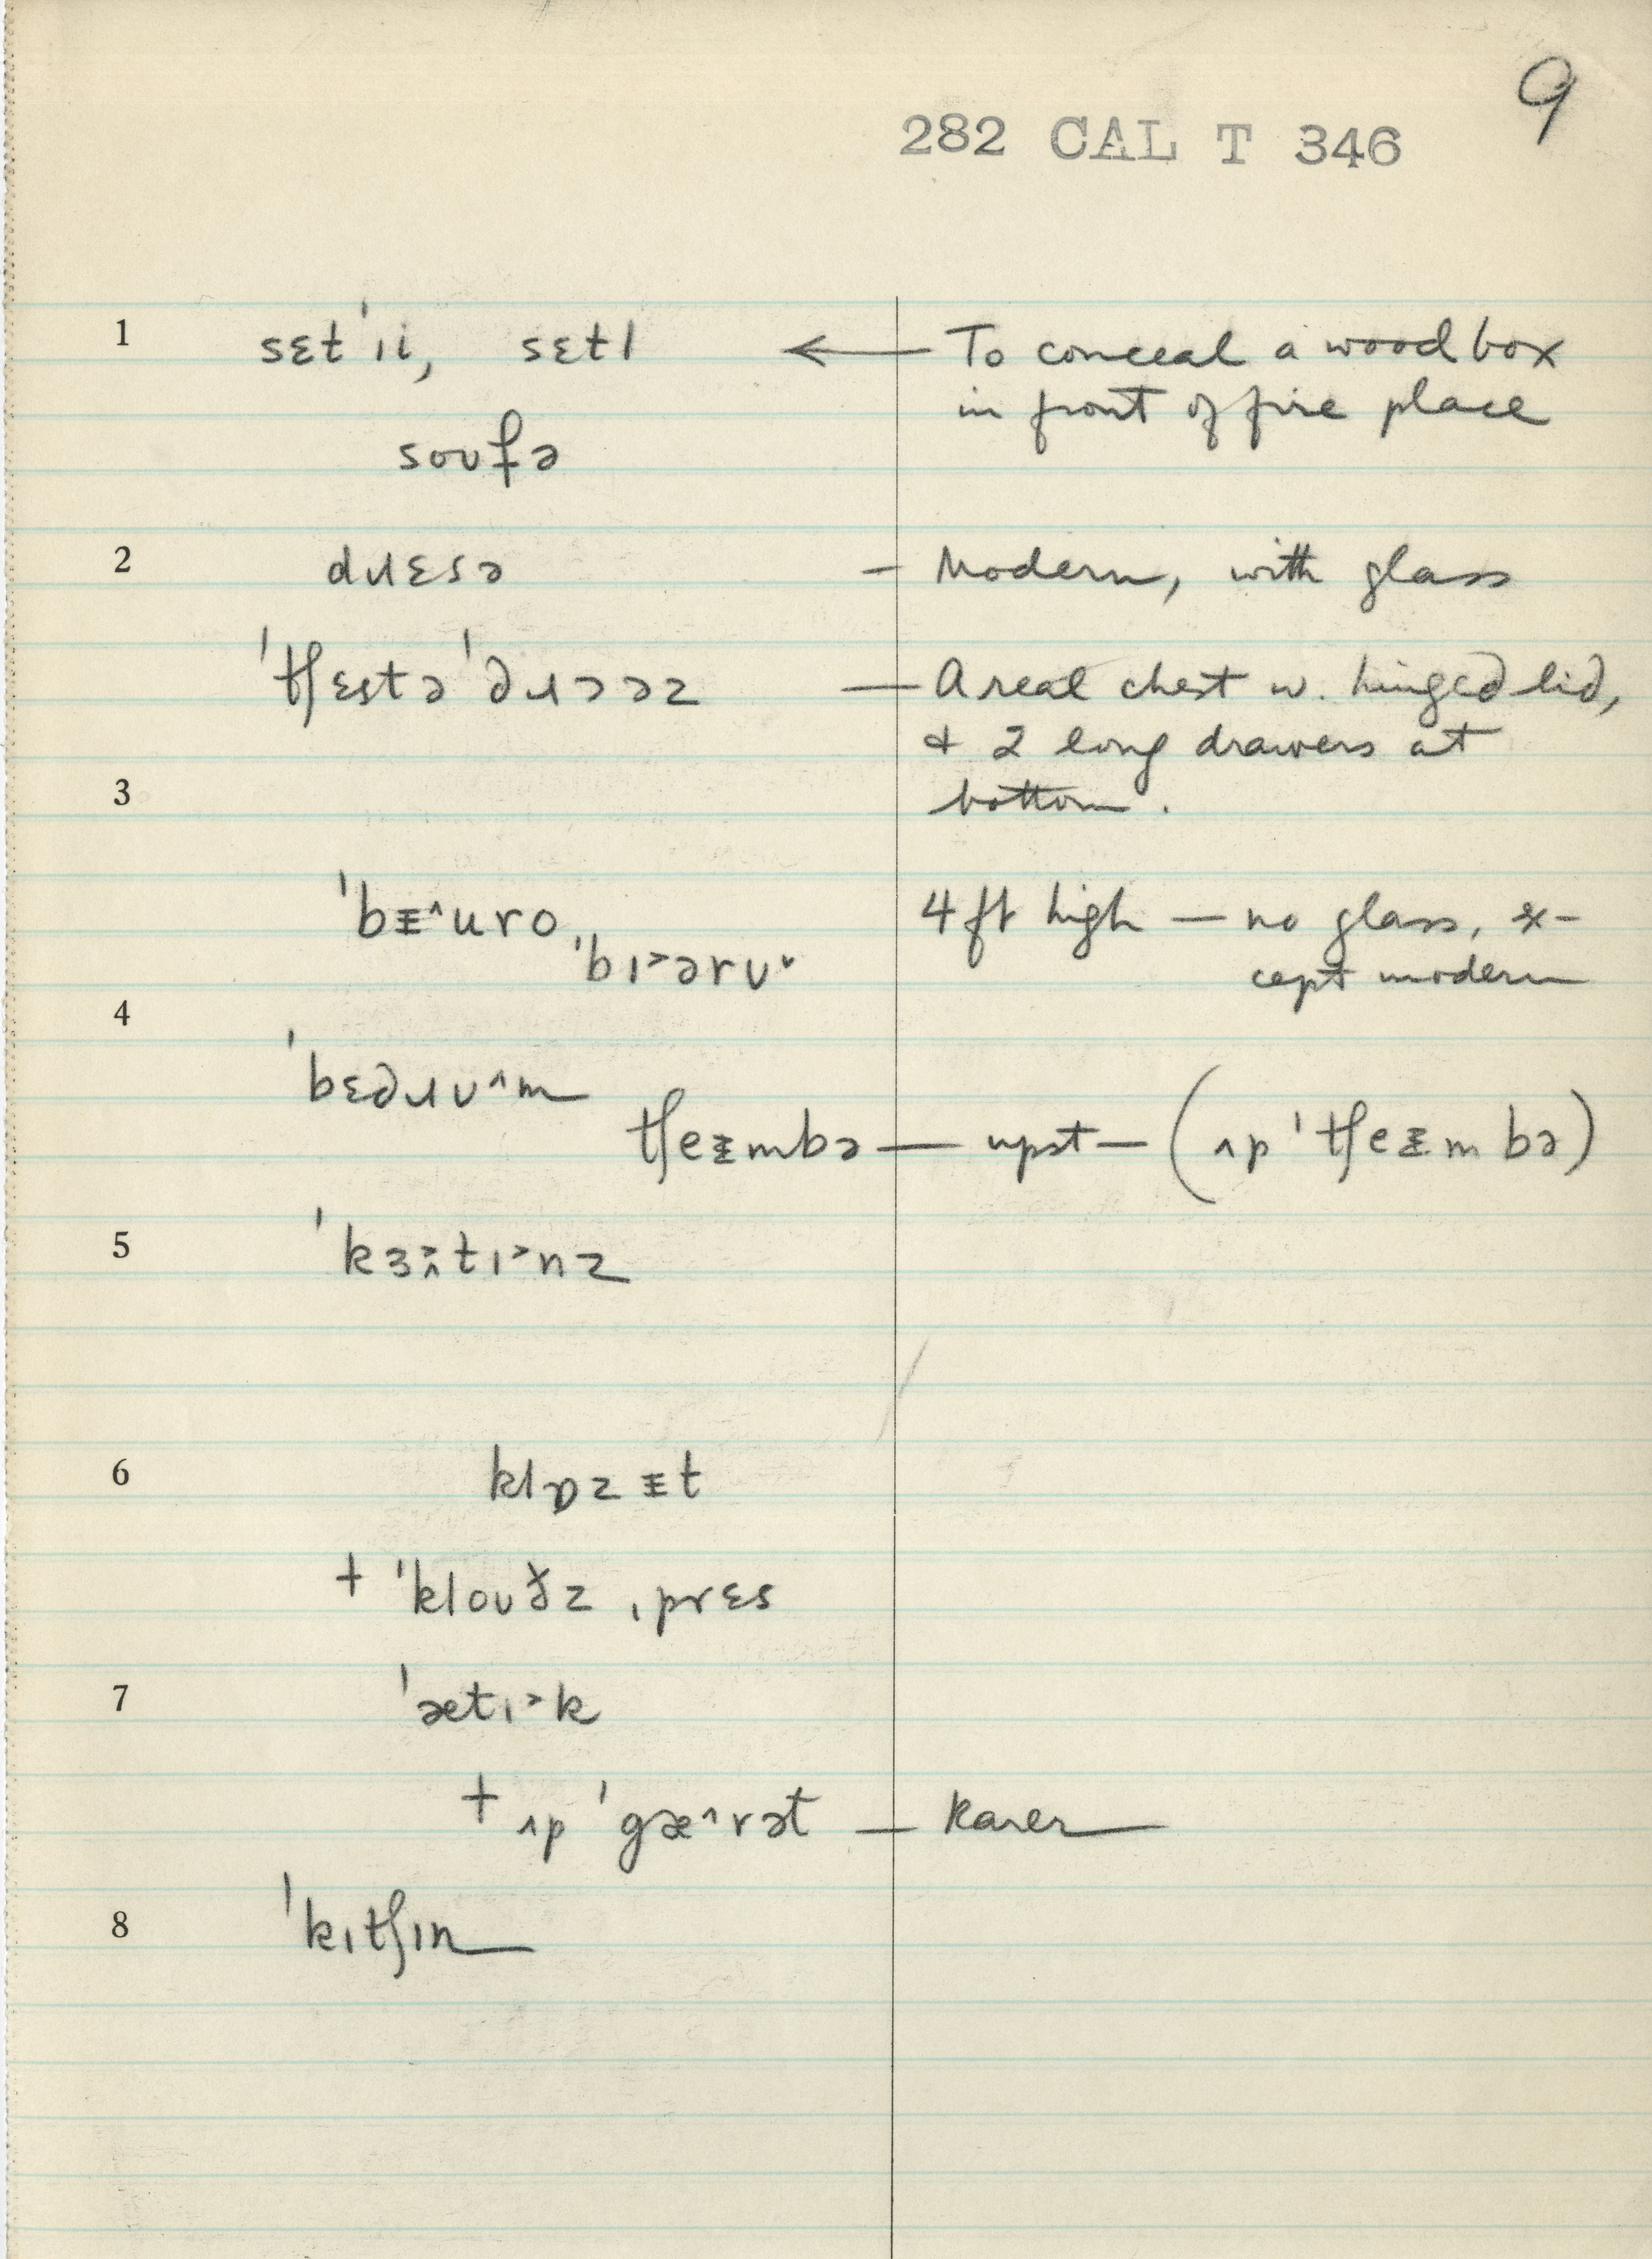 9
282 CAL T 346
1 sɛt'ıi, sɛtl ← To conceal a wood box
in front of fire place
soʊfə
2 dɹɛsə – Modern, with glass
'tʃɛstə'dɹɔəz — A real chest w. hinged lid,
& 2 long drawers at
3 bottom.
'bᵻ^uro, 4 ft high — no glass, ex-
'bɪ>ərʊ˅ cept modern
4
'bɛdɹʊ^m
tʃeᵻmbə — upst — (ʌp'tʃeᵻmbə)
5 'kɜ:tɪ>nz
6 klɒzᵻt
+ 'kloʊðz ˌprɛs
7 'ætɪ>k
+ ʌp 'gæ^rət — Rarer
8 'kɪtʃɪn